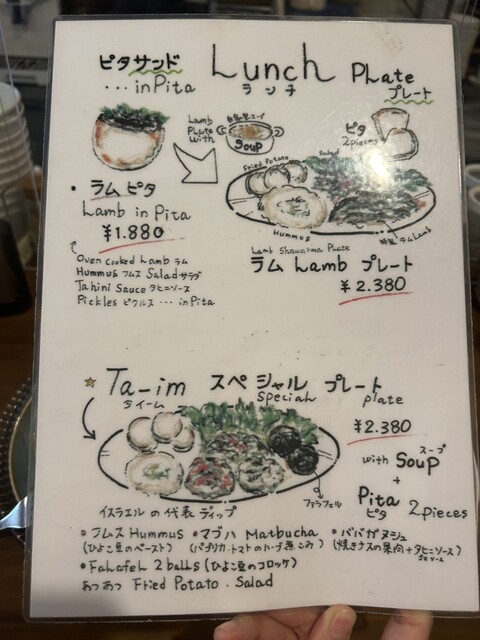 ピタサンド Lunch Plate
... in Pita ランチ プレート
Lamb
Plate
with
soup
ピタ
2 pieces
Fried Potato
Salad
Hummus
ラム Lamb
・ラム ピタ
Lamb in Pita
¥1.880
Oven cooked Lamb ラム
Hummus フムス Salad サラダ
Tahini Sauce タヒニソース
Pickles ピクルス ... in Pita
Lamb Shawarma Plate
ラム Lamb プレート
¥2.380
☆ Ta-im スペシャル プレート
タイーム Special plate
¥2.380
with Soup スープ
+
Pita 2 pieces
ピタ
ファラフェル
イスラエルの代表ディップ
・フムス Hummus ・マブハ Matbucha ・ババガヌシュ
(ひよこ豆のペースト) (パプリカ・トマトのハーブ煮こみ) (焼きナスの果肉+タヒニソース)
・Falafel 2 balls (ひよこ豆のコロッケ)
あつあつ Fried Potato . Salad